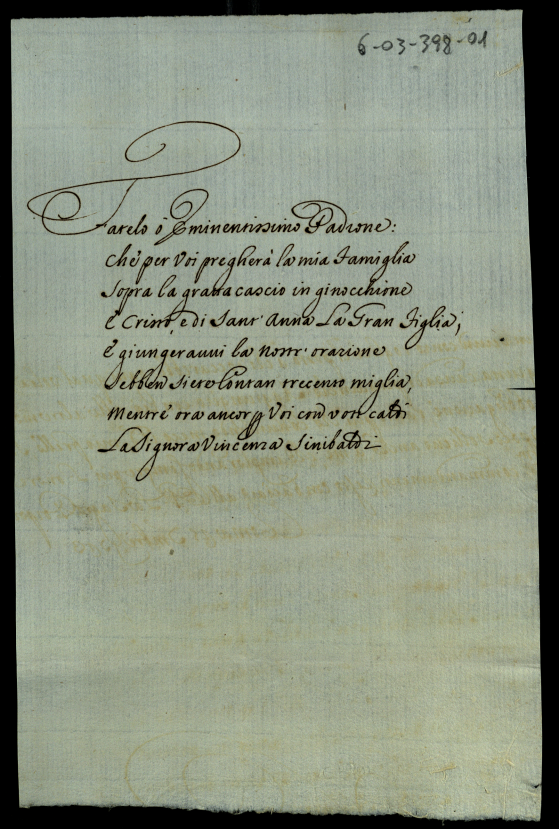 6-03-398-01
Farelo ò Eminentissimo Padrone:
Che per Voi pregherà la mia Famiglia
Sopra la gratta cascio in ginocchione
E Cristo, e di Sant' Anna La Gran Figlia;
E giungerauui la nostr' orazione
Sebben siete lontan trecento miglia,
Mentre ora ancor p Voi con voti caldi
La Signora Vincenza Sinibaldi